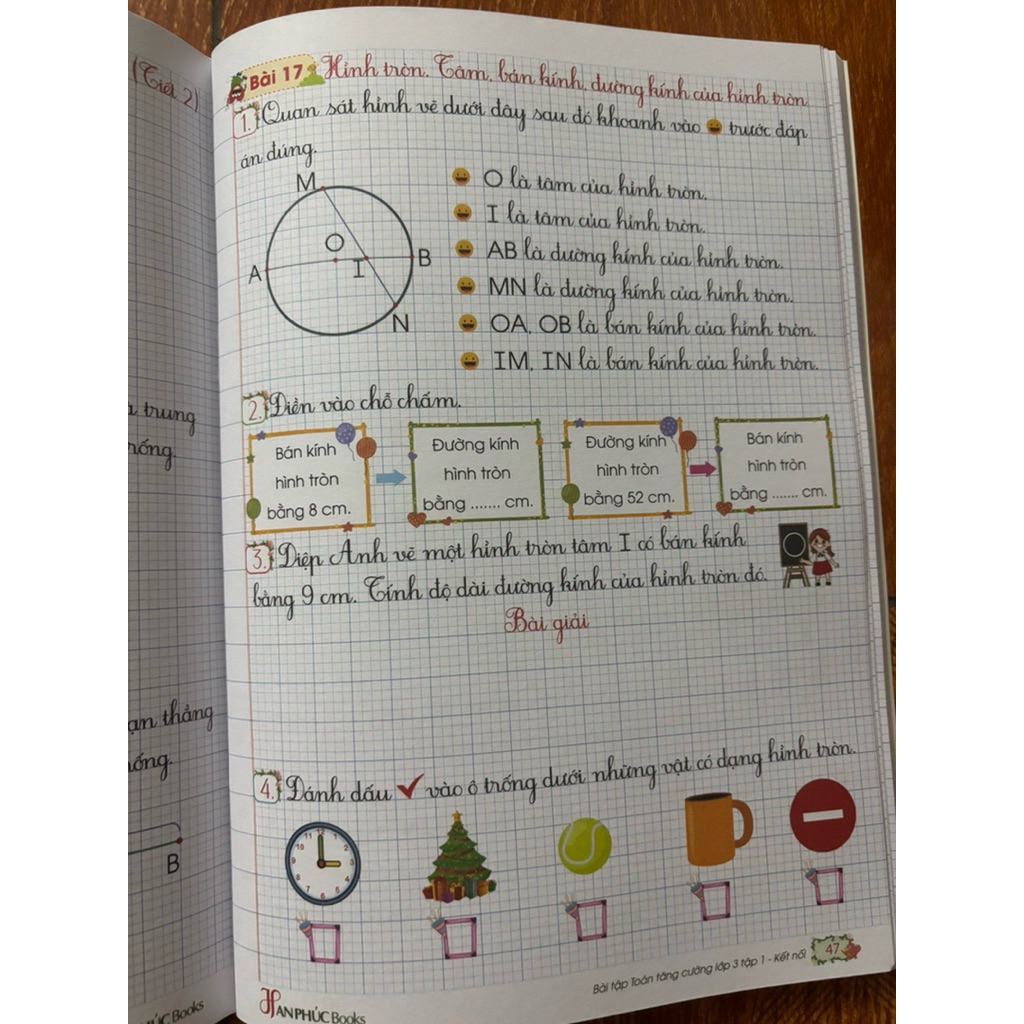 (Tiết 2)
trung
rống.
ạn thẳng
ống.
B
ÚC Books
Bài 17 Hình tròn. Tâm, bán kính, đường kính của hình tròn
1. Quan sát hình vẽ dưới đây sau đó khoanh vào trước đáp
án đúng.
M
O
A
I
B
N
O là tâm của hình tròn.
I là tâm của hình tròn.
AB là đường kính của hình tròn.
MN là đường kính của hình tròn.
OA, OB là bán kính của hình tròn.
IM, IN là bán kính của hình tròn.
2. Điền vào chỗ chấm.
Bán kính
hình tròn
bằng 8 cm.
Đường kính
hình tròn
bằng ....... cm.
Đường kính
hình tròn
bằng 52 cm.
Bán kính
hình tròn
bằng ....... cm.
3. Diệp Anh vẽ một hình tròn tâm I có bán kính
bằng 9 cm. Tính độ dài đường kính của hình tròn đó.
Bài giải
4. Đánh dấu ✓ vào ô trống dưới những vật có dạng hình tròn.
Bài tập Toán tăng cường lớp 3 tập 1 - Kết nối 47
AN PHÚC Books